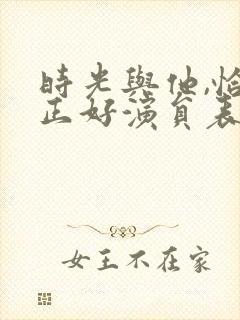 時光與他,恰
正好演員表
女王不在家